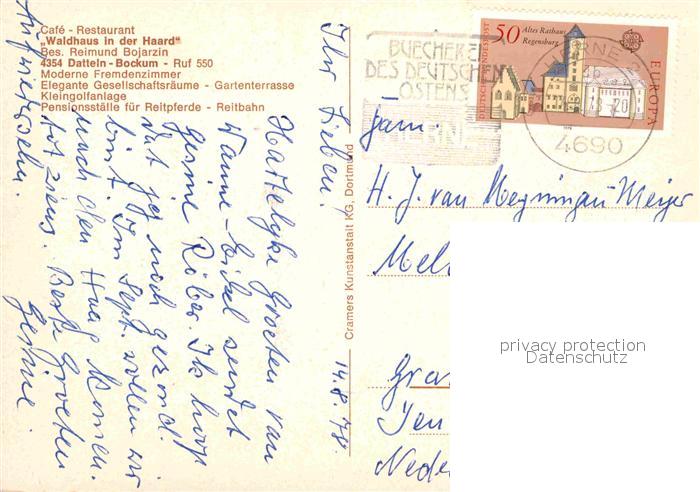 Café - Restaurant
„Waldhaus in der Haard"
Bes. Reimund Bojarzin
4354 Datteln-Bockum - Ruf 550
Moderne Fremdenzimmer
Elegante Gesellschaftsräume - Gartenterrasse
Kleingolfanlage
Pensionsställe für Reitpferde - Reitbahn
14.8.78.
Ihr Lieben!
Hartelyke Groeten van
Wanne-Eickel sendet
Gesine Röber. Ik hoop
dat jij noch gezond
bint. Im Sept. wollen wir
nach Den Haag kommen.
tot ziens. Beste Groeten
Gesine.
Aufwiedersehn.
Cramers Kunstanstalt KG, Dortmund
BUECHEREI
DES DEUTSCHEN
OSTENS
HERNE
4690
50
Altes Rathaus
Regensburg
DEUTSCHE BUNDESPOST
EUROPA
CEPT
1978
Fam.
H. J. van Meyningau Meijer
Mel
Gra
Ten
Nede
privacy protection
Datenschutz